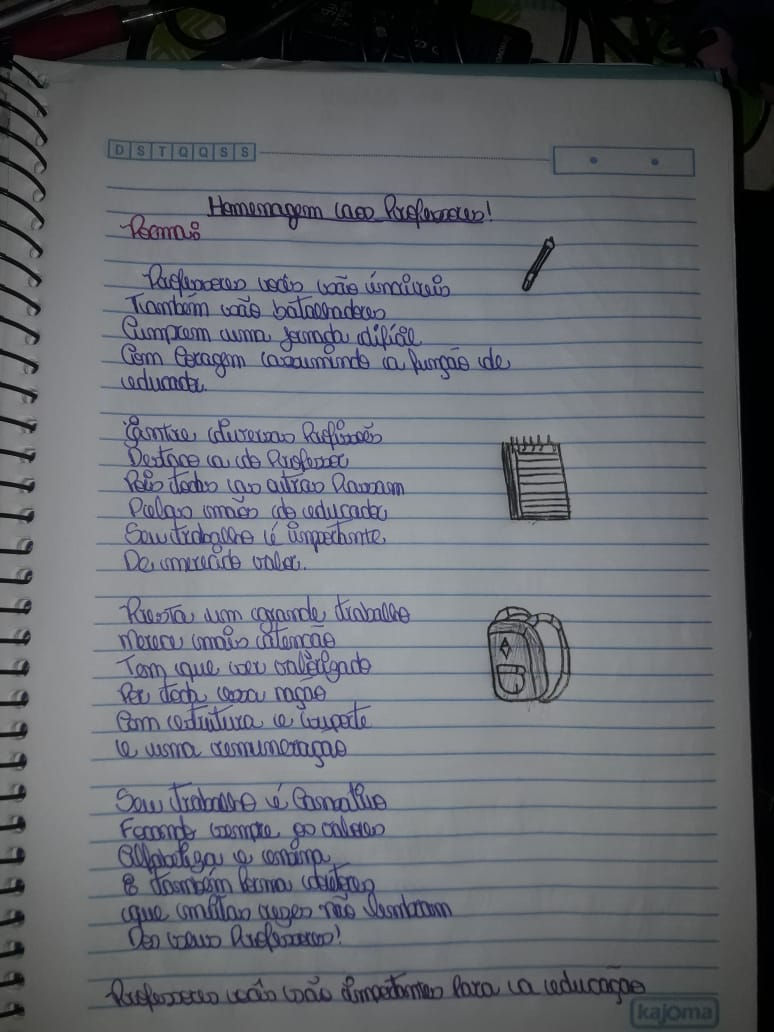 D S T Q Q S S
Homenagem aos Professores!
Poema:
Professores vocês são incríveis
Também são batalhadores
Cumprem uma jornada difícil
Com Coragem assumindo a função de
educador.
Entre diversas Profissões
Destaco a do Professor
Pois todas as outras Passam
Pelas mãos do educador
Seu trabalho é importante
De merecido valor.
Presta um grande trabalho
Merece mais atenção
Tem que ser valorizado
Por toda essa nação
Com estrutura e suporte
e uma remuneração
Seu trabalho é
Focando sempre os valores
Alfabetiza e ensina
E também forma doutores
que muitas vezes não lembram
Dos seus Professores!
Professores vocês são importantes Para a educação
kajoma